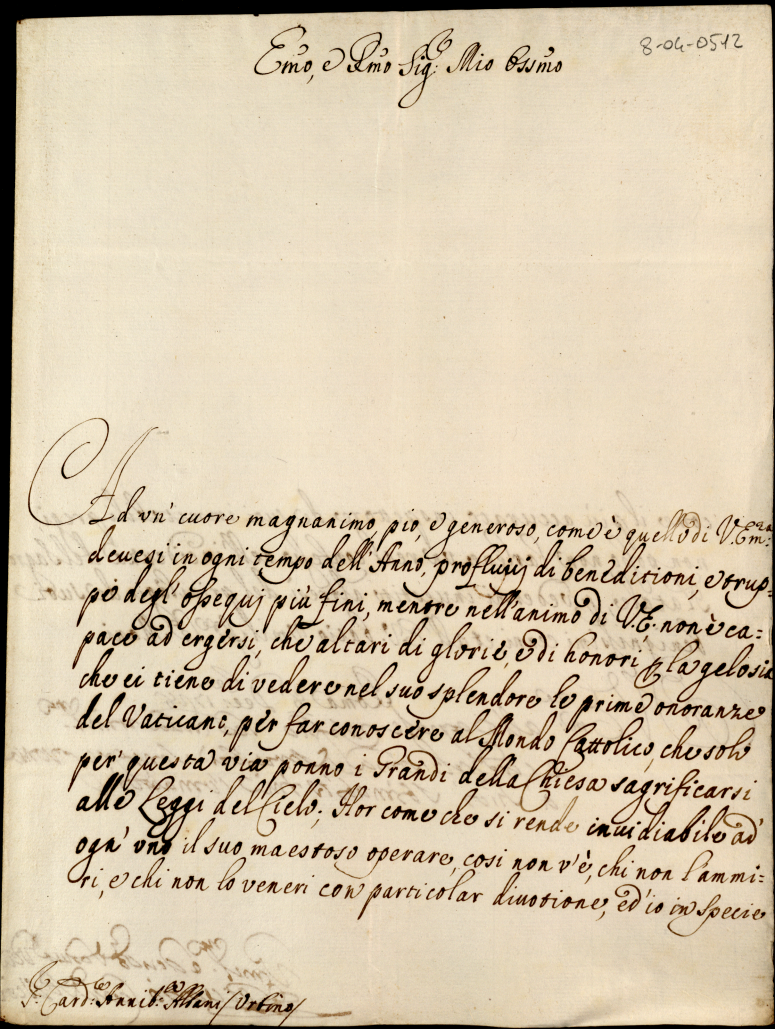 8-04-0512
Emo, e Rmo Sig.r Mio Ossmo
Ad vn' cuore magnanimo pio, e generoso, come è quello di V. Emza
deuesi in ogni tempo dell'Anno, profluuij di beneditioni, e trup=
pe degl'ossequij più fini, mentre nell'animo di V.E. non è ca=
pace ad ergersi, che altari di glorie, e di honori p la gelosia
che ei tiene di vedere nel suo splendore le prime onoranze
del Vaticano, per far conoscere al Mondo Cattolico, che solo
per' questa via ponno i Grandi della Chiesa sagrificarsi
alle Leggi del Cielo; Hor come che si rende inuidiabile ad'
ogn' vno il suo maestoso operare, cosi non v'è, chi non l'ammi=
ri, e chi non lo veneri con particolar diuotione, ed' io in specie
Sr. Card.le Annib.le Albani / Urbino /